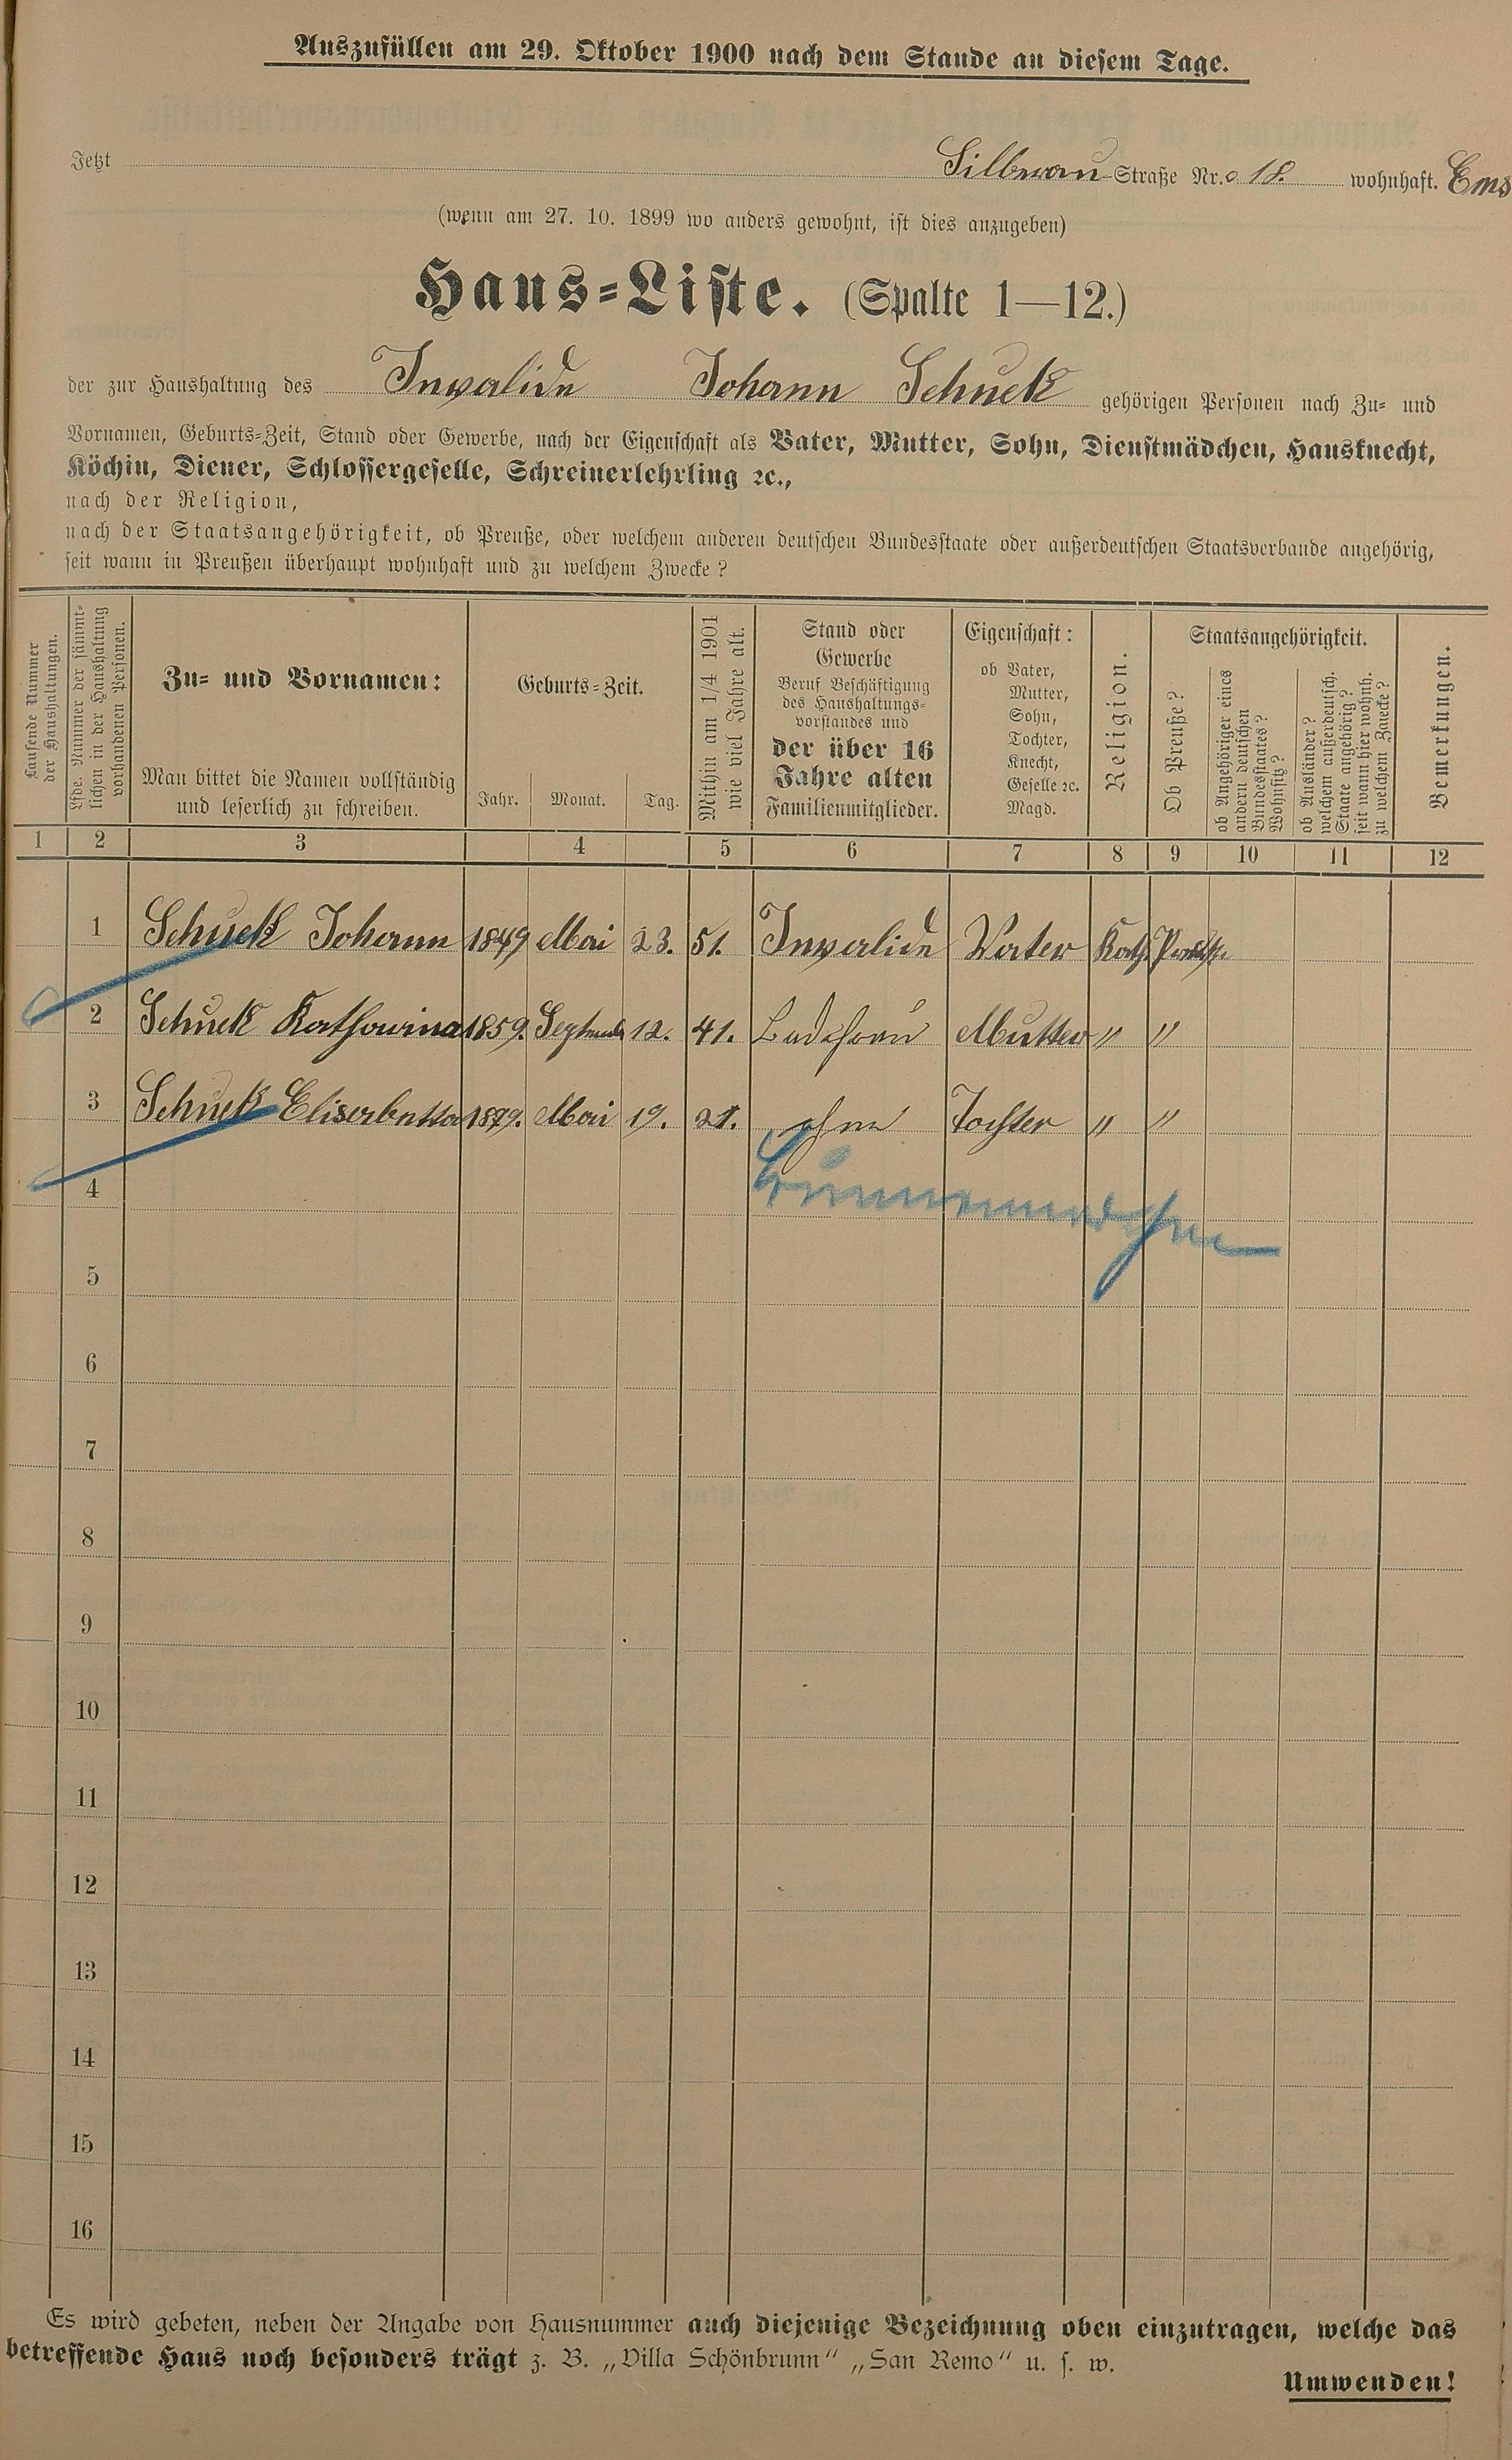 Auszufüllen am 29. Oktober 1900 nach dem Stande an diesem Tage.
Jetzt Silberau-Straße Nr. 18. wohnhaft. Ems
(wenn am 27. 10. 1899 wo anders gewohnt, ist dies anzugeben)
Haus-Liste. (Spalte 1—12.)
der zur Haushaltung des Invalide Johann Schuck gehörigen Personen nach Zu- und
Vornamen, Geburts-Zeit, Stand oder Gewerbe, nach der Eigenschaft als Vater, Mutter, Sohn, Dienstmädchen, Hausknecht,
Köchin, Diener, Schlossergeselle, Schreinerlehrling ꝛc.,
nach der Religion,
nach der Staatsangehörigkeit, ob Preuße, oder welchem anderen deutschen Bundesstaate oder außerdeutschen Staatsverbande angehörig,
seit wann in Preußen überhaupt wohnhaft und zu welchem Zwecke?
Laufende Nummer
der Haushaltungen.
Lfde. Nummer der sämmt-
lichen in der Haushaltung
vorhandenen Personen.
Zu- und Vornamen:
Man bittet die Namen vollständig
und leserlich zu schreiben.
Geburts-Zeit.
Jahr. Monat. Tag.
Mithin am 1/4 1901
wie viel Jahre alt.
Stand oder
Gewerbe
Beruf Beschäftigung
des Haushaltungs-
vorstandes und
der über 16
Jahre alten
Familienmitglieder.
Eigenschaft:
ob Vater,
Mutter,
Sohn,
Tochter,
Knecht,
Geselle ꝛc.
Magd.
Religion.
Staatsangehörigkeit.
Ob Preuße?
ob Angehöriger eines
andern deutschen
Bundesstaates?
Wohnsitz?
ob Ausländer?
welchem außerdeutsch.
Staate angehörig?
seit wann hier wohnh.
zu welchem Zwecke?
Bemerkungen.
1 2 3 4 5 6 7 8 9 10 11 12
1 Schuck Johann 1849 Mai 23. 51. Invalide Vater Kath. Preuße
2 Schuck Katharina 1859. September 12. 41. Badefrau Mutter " "
3 Schuck Elisabetha 1879. Mai 19. 21. ohne Tochter " "
Brunnenmädchen
4
5
6
7
8
9
10
11
12
13
14
15
16
Es wird gebeten, neben der Angabe von Hausnummer auch diejenige Bezeichnung oben einzutragen, welche das
betreffende Haus noch besonders trägt z. B. „Villa Schönbrunn" „San Remo" u. s. w.
Umwenden!